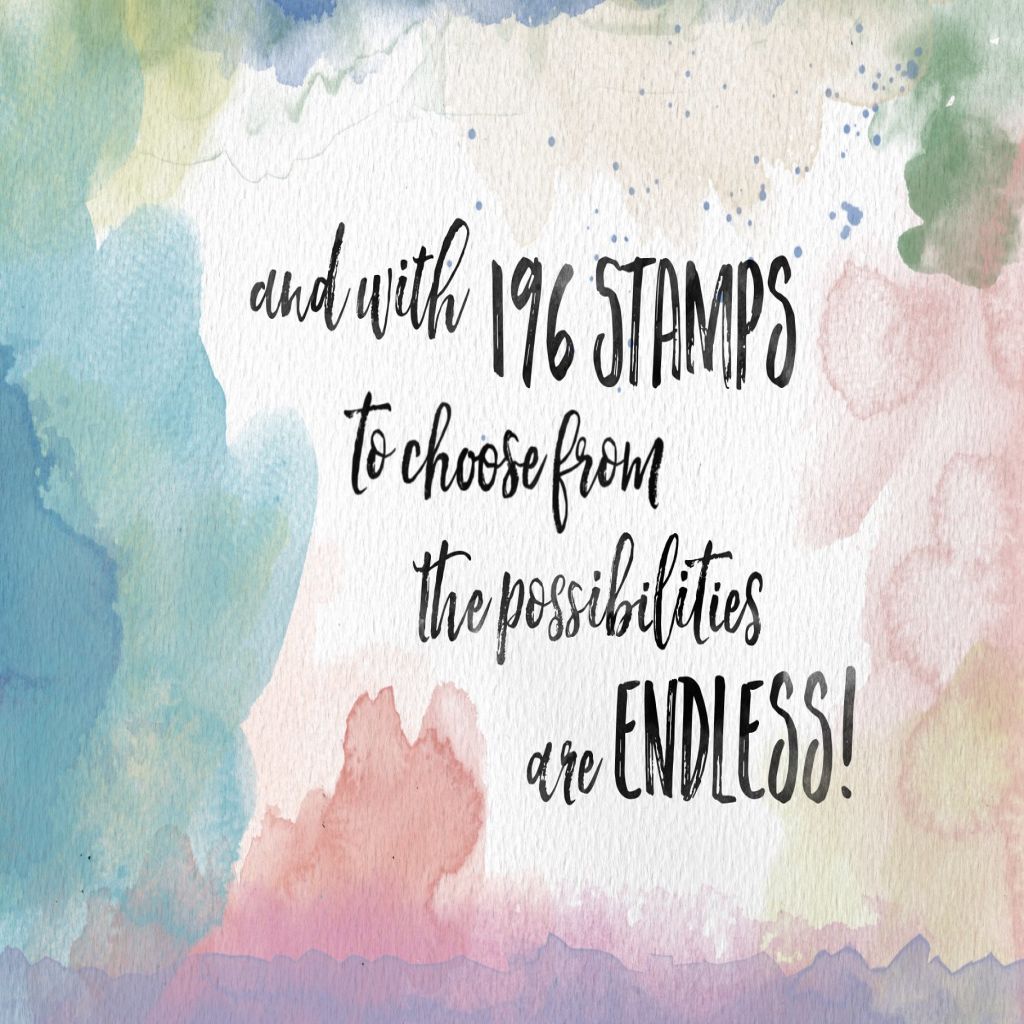 and with 196 STAMPS
to choose from
the possibilities
are ENDLESS!